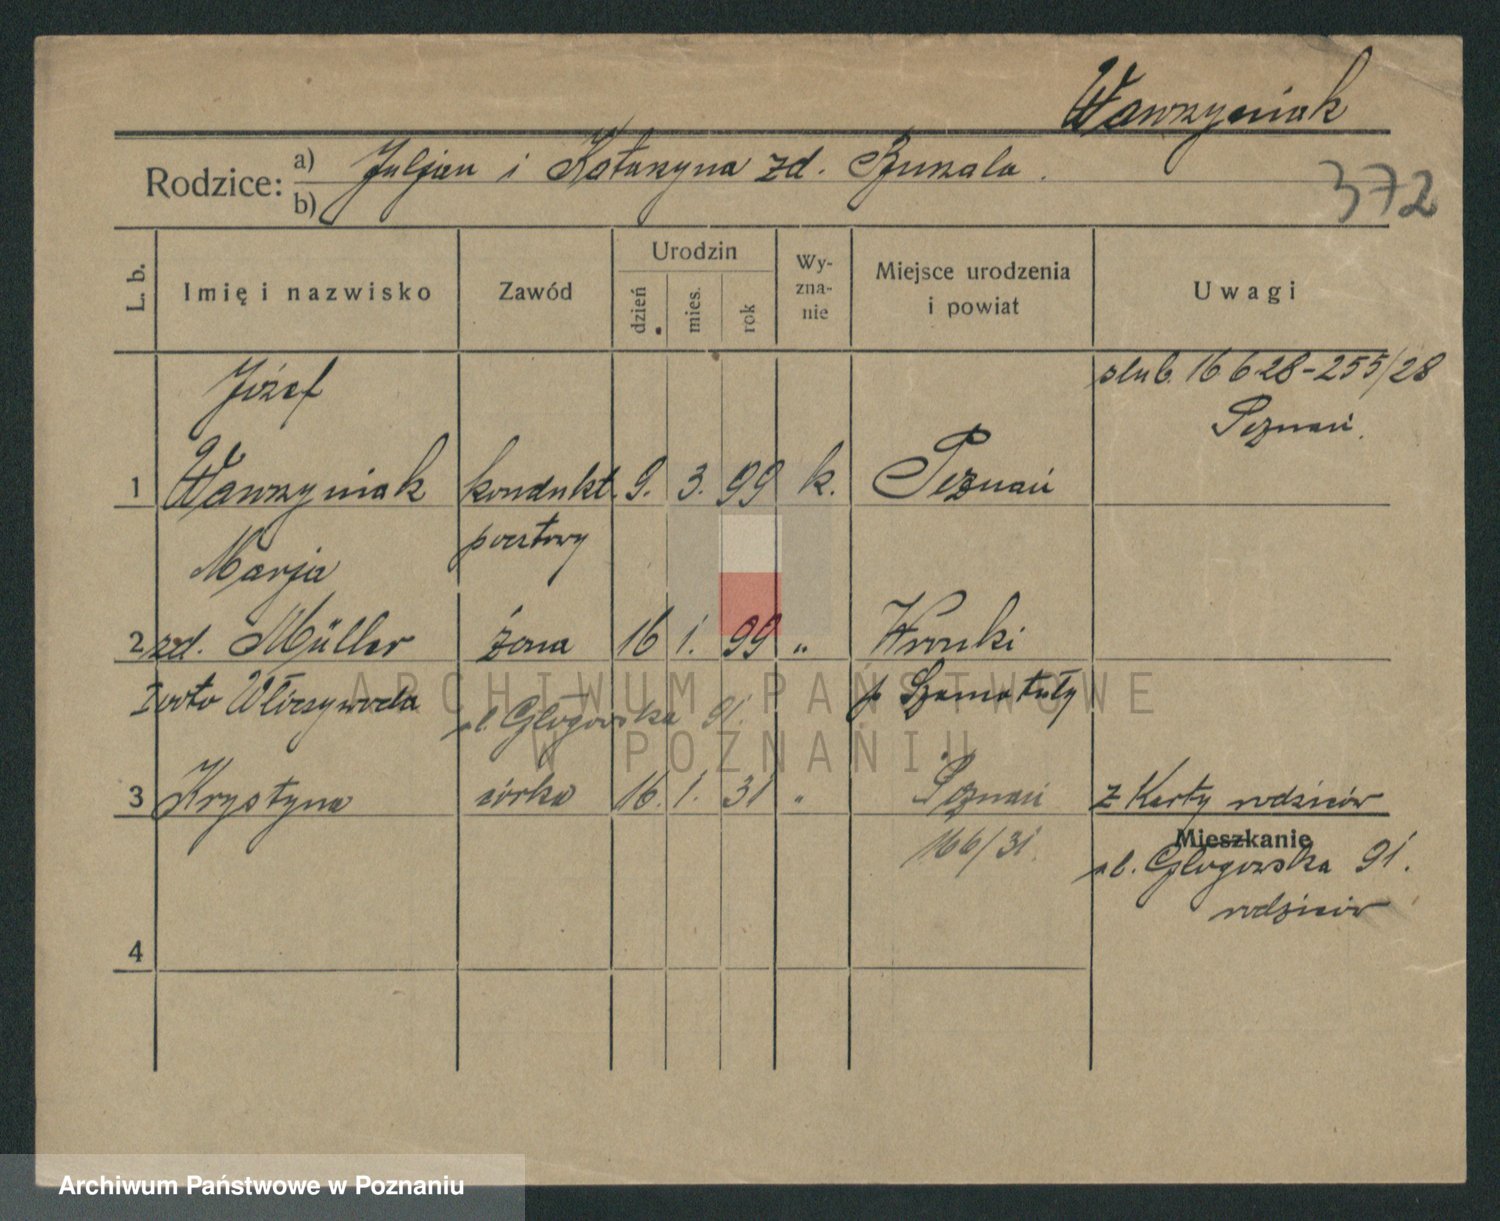 Wawrzyniak
Rodzice: a) Juljan i Katarzyna zd.
b)
372
L. b.
Imię i nazwisko
Zawód
Urodzin
dzień
mies.
rok
Wy-
zna-
nie
Miejsce urodzenia
i powiat
Uwagi
Józef
ślub. 16 6 28 - 255/28
Poznań.
1 Wawrzyniak kondukt. 9. 3. 99 k. Poznań
pocztowy
Marja
2 zd. Müller żona 16 1. 99 „ Wronki
p Szamotuły
ul. Głogowska 91.
3 Krystyna córka 16. 1. 31 „ Poznań z Karty rodziców
166/31.
Mieszkanie
ul. Głogowska 91.
rodziców
4
ARCHIWUM PAŃSTWOWE
W POZNANIU
Archiwum Państwowe w Poznaniu